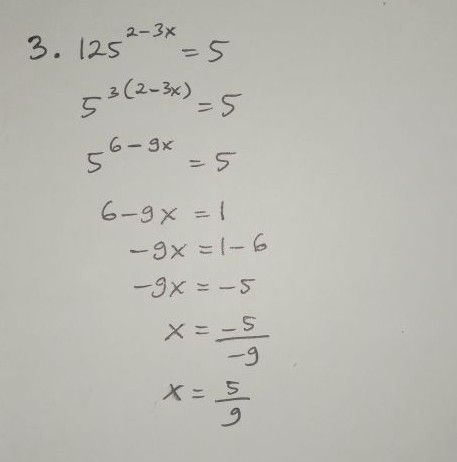 3. 125^{2-3x} = 5
5^{3(2-3x)} = 5
5^{6-9x} = 5
6-9x = 1
-9x = 1-6
-9x = -5
x = \frac{-5}{-9}
x = \frac{5}{9}